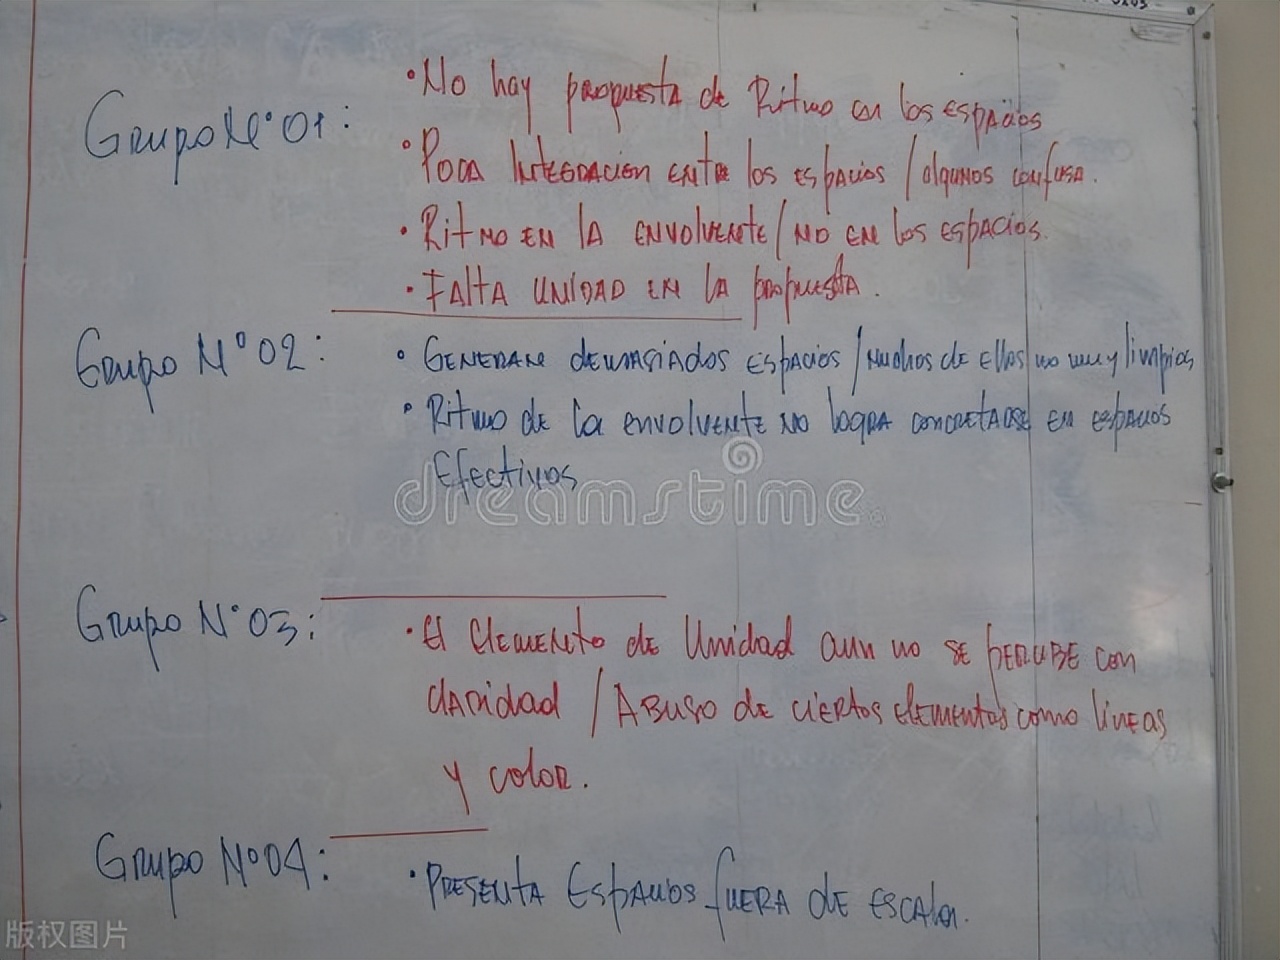 Grupo N°01:
• No hay propuesta de Ritmo en los espacios
• Poca Integración entre los espacios / algunos confusa.
• Ritmo en la envolvente / no en los espacios.
• Falta unidad en la propuesta.
Grupo N°02:
• Generan demasiados espacios / muchos de ellos no muy limpios
• Ritmo de la envolvente no logra concretarse en espacios
Efectivos
dreamstime
Grupo N°03:
• El elemento de Unidad aun no se percibe con
claridad / Abuso de ciertos elementos como líneas
y color.
Grupo N°04:
• Presenta Espacios fuera de escala.
版权图片